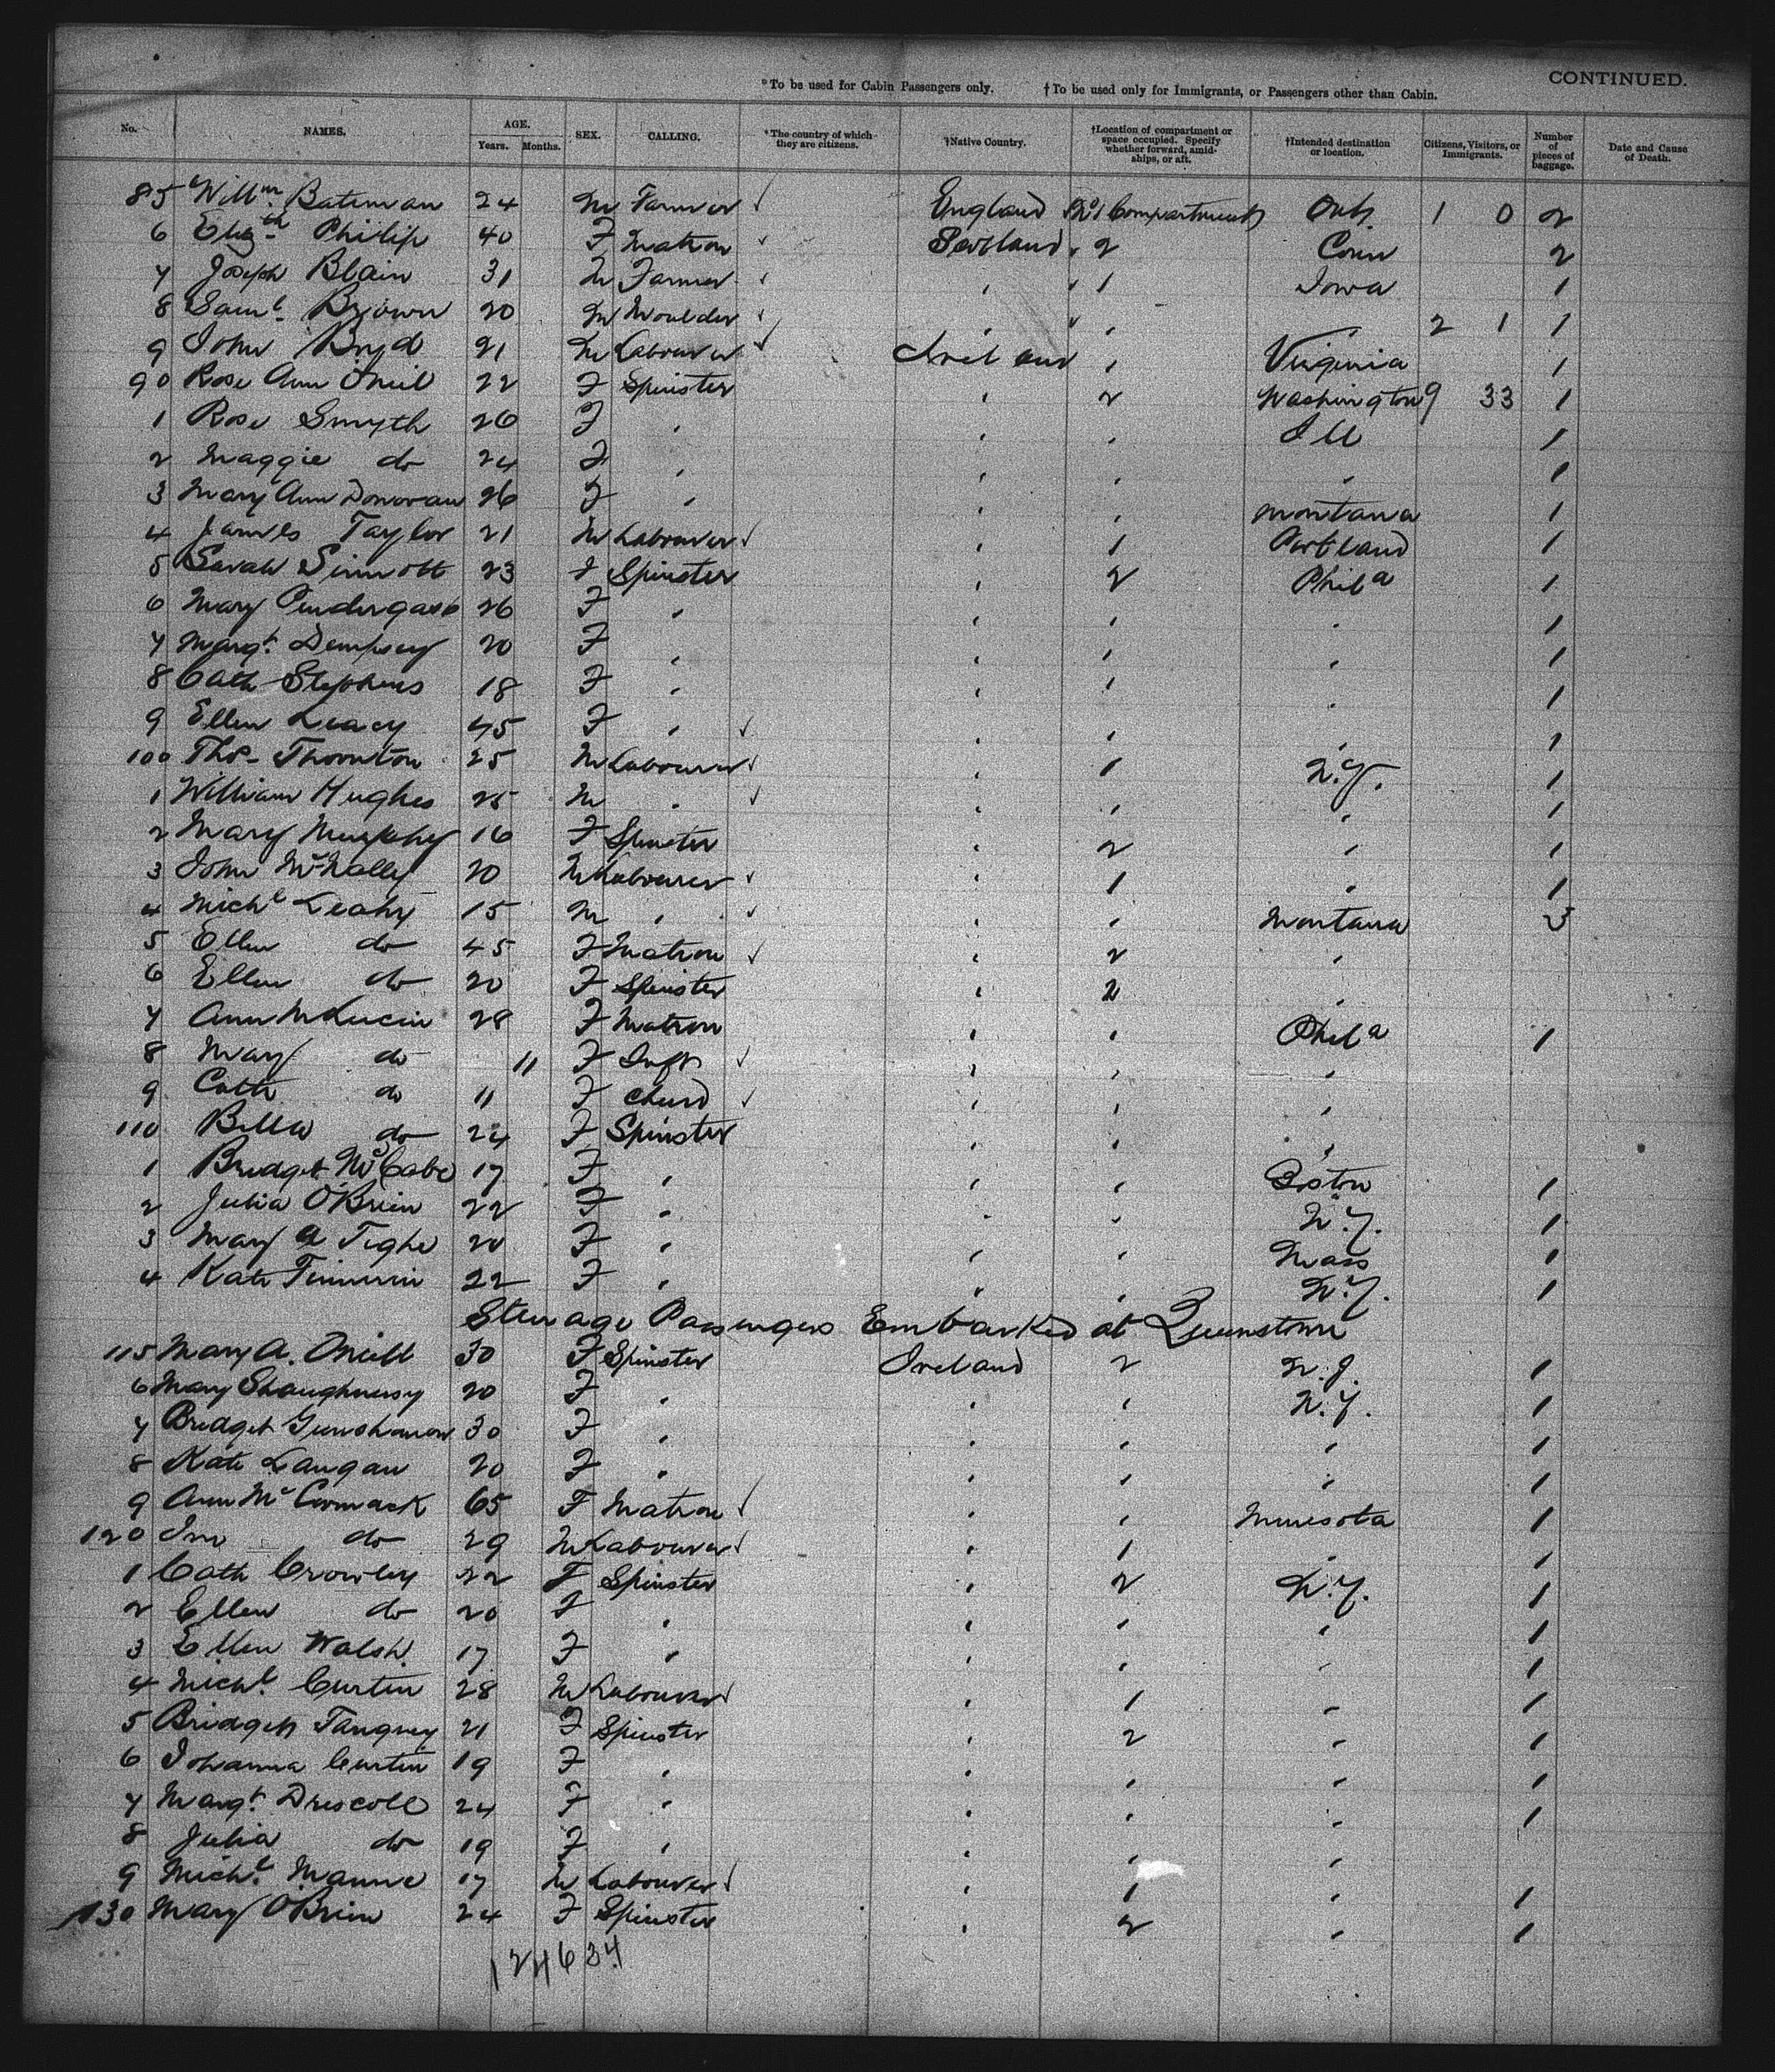 CONTINUED.
*To be used for Cabin Passengers only. †To be used only for Immigrants, or Passengers other than Cabin.
No. NAMES. AGE. Years. Months. SEX. CALLING. *The country of which they are citizens. †Native Country. †Location of compartment or space occupied. Specify whether forward, amidships, or aft. †Intended destination or location. Citizens, Visitors, or Immigrants. Number of pieces of baggage. Date and Cause of Death.
85 Willm. Bateman 24 M Farmer ✓ England No 1 Compartment 1 0 2
6 Elizth Philip 40 F Matron ✓ Scotland " 2 Conn 2
7 Joseph Blain 31 M Farmer ✓ " " 1 Iowa 1
8 Saml. Brown 20 M Moulder ✓ " " " " 2 1 1
9 John Boyd 21 M Labourer ✓ Ireland " Virginia 1
90 Rose Ann Oneil 22 F Spinster " 2 Washington 9 33 1
1 Rose Smyth 26 F " " " Ill 1
2 Maggie do 24 F " " " " 1
3 Mary Ann Donovan 26 F " " " Montana 1
4 James Taylor 21 M Labourer ✓ " 1 Portland 1
5 Sarah Sinnott 23 F Spinster " 2 Phila 1
6 Mary Pendergast 26 F " " " " 1
7 Margt. Dempsey 20 F " " " " 1
8 Cath Stephens 18 F " " " " 1
9 Ellen Leacy 45 F " ✓ " " " 1
100 Thos. Thornton 25 M Labourer ✓ " 1 N.Y. 1
1 William Hughes 25 M " ✓ " " " 1
2 Mary Murphy 16 F Spinster " 2 " 1
3 John McNally 20 M Labourer ✓ " 1 " 1
4 Michl Leahy 15 M " ✓ " " Montana 3
5 Ellen do 45 F Matron ✓ " 2 "
6 Ellen do 20 F Spinster " 2 "
7 Ann 28 F Matron " " Phila 1
8 Mary do 11 F Inft ✓ " " "
9 Cath do 11 F Child ✓ " " "
110 Bella do 24 F Spinster " " "
1 Bridget McCabe 17 F " " " Boston 1
2 Julia O'Brien 22 F " " " N.Y. 1
3 Mary A Tighe 20 F " " " Mass 1
4 Kate 22 F " " " N.Y. 1
Steerage Passengers Embarked at Queenstown
115 Mary A. Oneill 30 F Spinster Ireland 2 N.J. 1
6 Mary Shaughnessy 20 F " " " N.Y. 1
7 Bridget Gunshanon 30 F " " " " 1
8 Kate Langan 20 F " " " " 1
9 Ann McCormack 65 F Matron ✓ " " Minnesota 1
120 Jno do 29 M Labourer ✓ " 1 " 1
1 Cath Crowley 22 F Spinster " 2 N.Y. 1
2 Ellen do 20 F " " " " 1
3 Ellen Walsh 17 F " " " " 1
4 Michl. Curtin 28 M Labourer ✓ " 1 " 1
5 Bridget Tangney 21 F Spinster " 2 " 1
6 Johanna Curtin 19 F " " " " 1
7 Margt. Driscoll 24 F " " " " 1
8 Julia do 19 F " " " "
9 Michl. 17 M Labourer ✓ " 1 " 1
130 Mary O'Brien 24 F Spinster " 2 " 1
124634